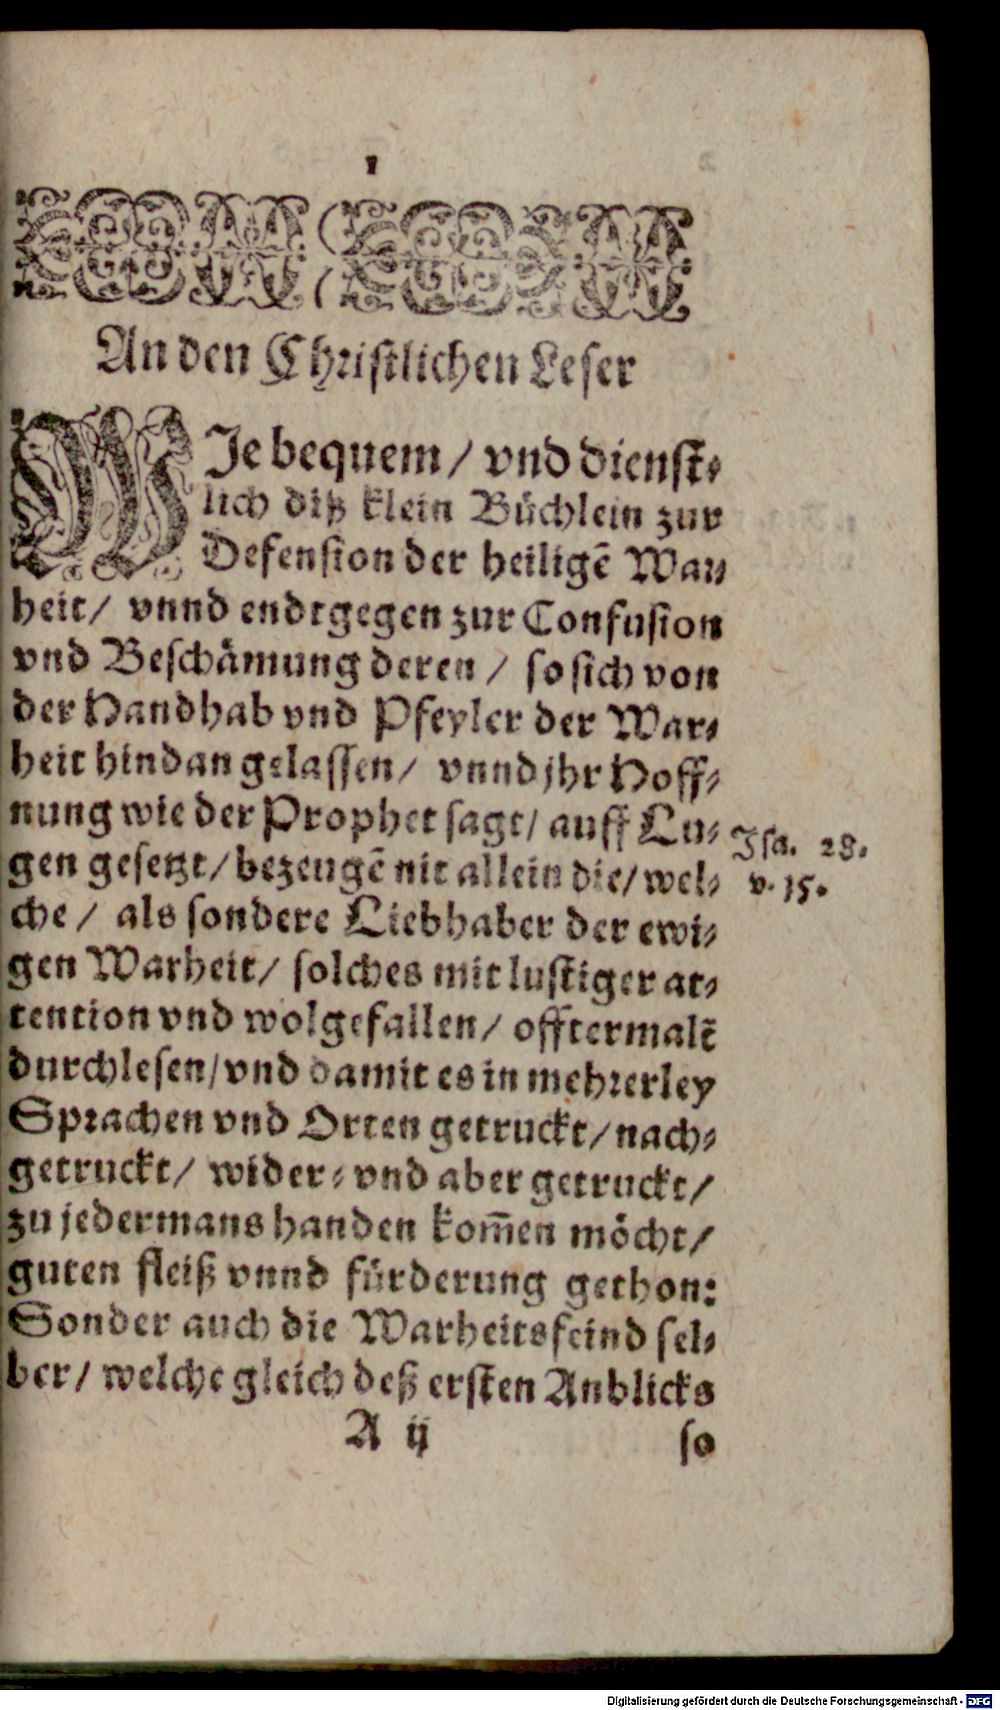 1
An den Chriſtlichen Leſer
WJe bequem / vnd dienſt⸗
lich diß klein Büchlein zur
Defenſion der heiligẽ War⸗
heit / vnnd endtgegen zur Confuſion
vnd Beſchämung deren / ſo ſich von
der Handhab vnd Pfeyler der War⸗
heit hindan gelaſſen / vnnd jhr Hoff⸗
nung wie der Prophet ſagt / auff Lu⸗
Jſa. 28.
gen geſetzt / bezeugẽ nit allein die / wel⸗
v. 15.
che / als ſondere Liebhaber der ewi⸗
gen Warheit / ſolches mit luſtiger at⸗
tention vnd wolgefallen / offtermalẽ
durchleſen / vnd damit es in mehrerley
Sprachen vnd Orten getruckt / nach⸗
getruckt / wider⸗ vnd aber getruckt /
zu jedermans handen kom̃en möcht /
guten fleiß vnnd fürderung gethon:
Sonder auch die Warheitsfeind ſel⸗
ber / welche gleich deß erſten Anblicks
A ij
ſo
Digitalisierung gefördert durch die Deutsche Forschungsgemeinschaft - DFG